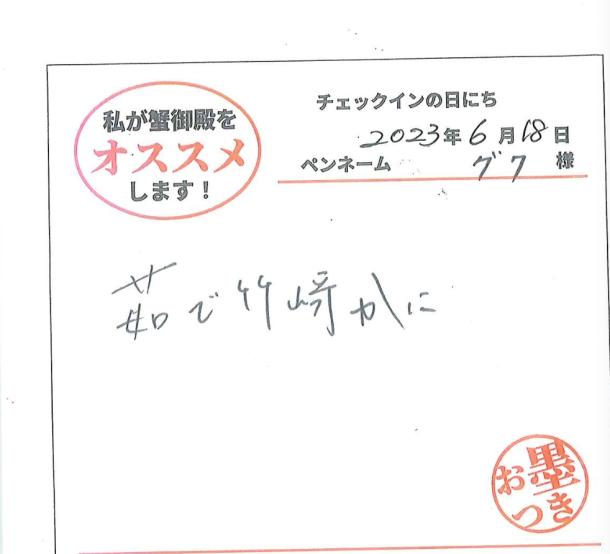 私が蟹御殿を
オススメ
します！
チェックインの日にち
2023年6月18日
ペンネーム グワ 様
茹で竹崎かに
お墨
つき